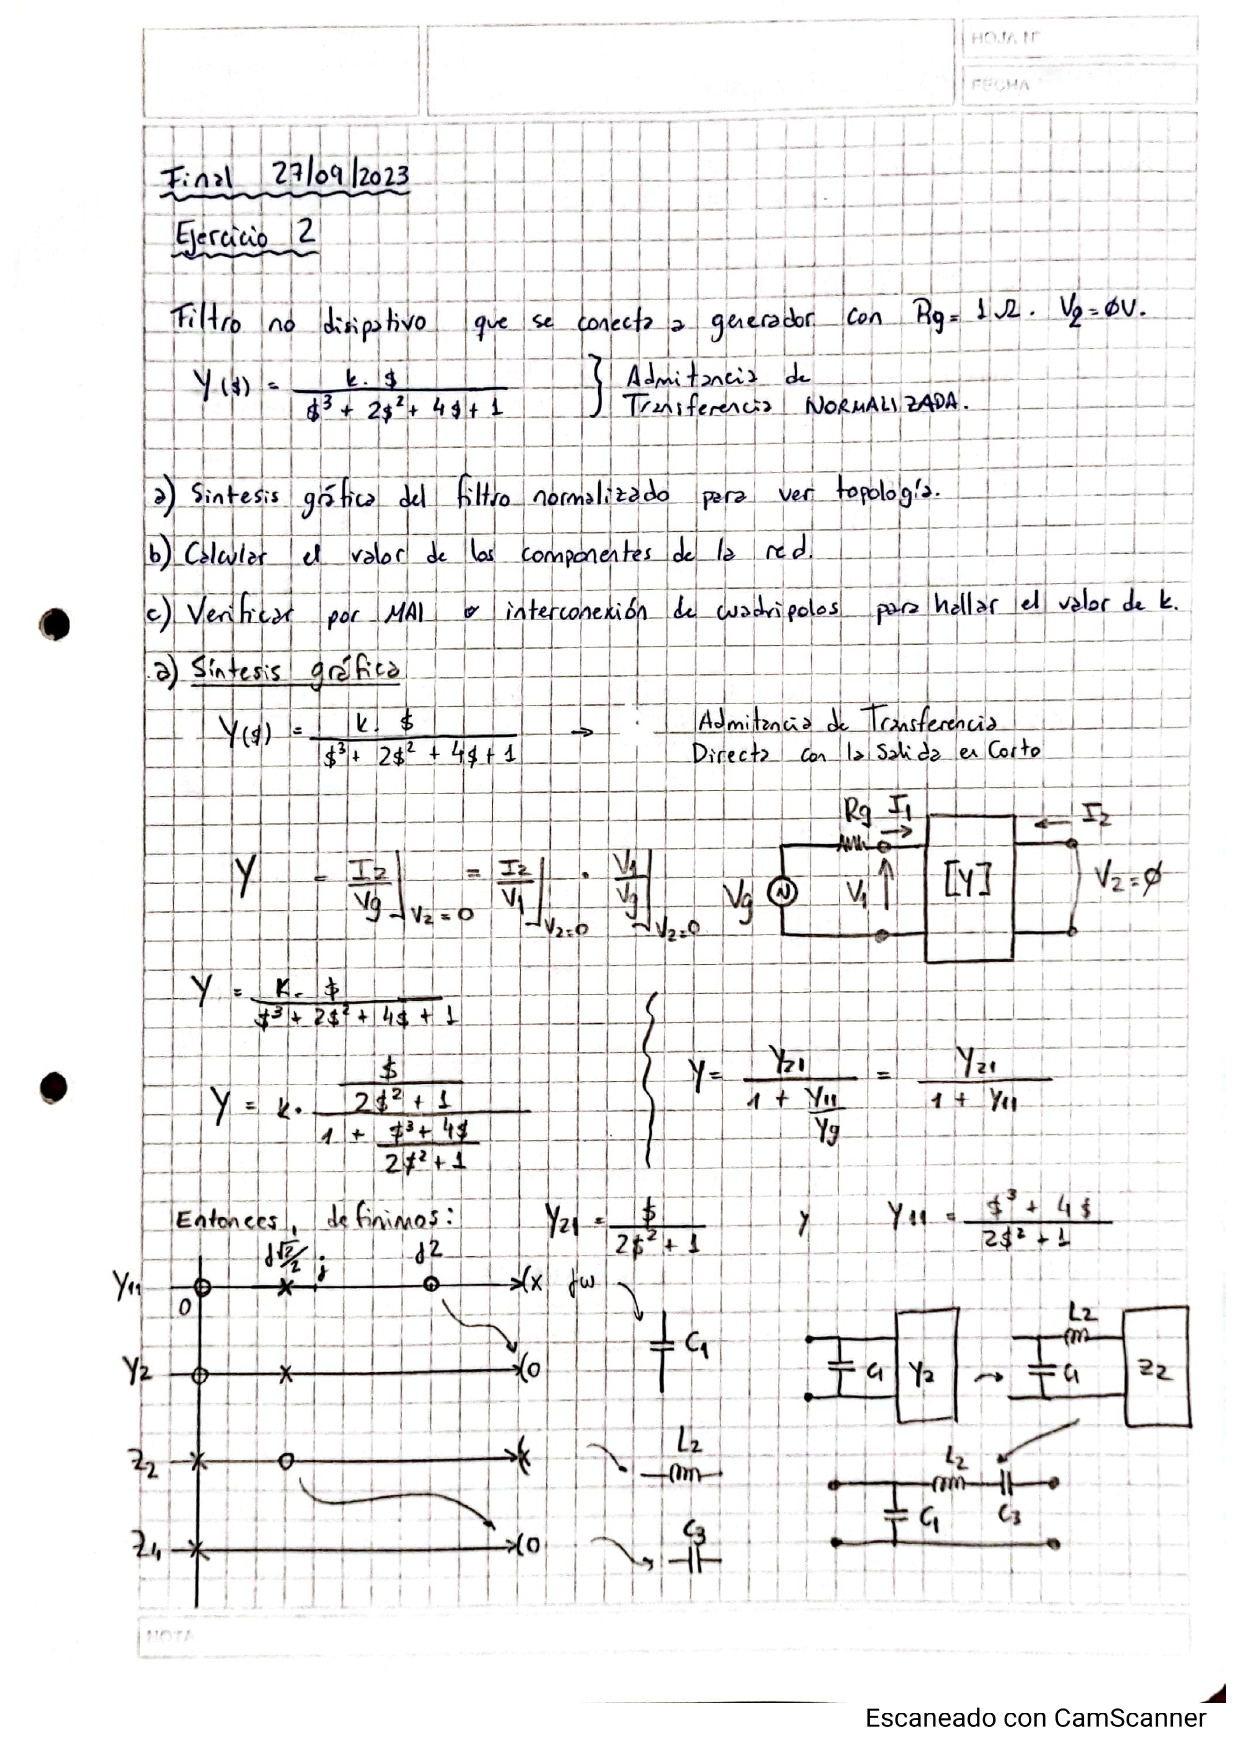 HOJA Nº
FECHA
Final 27/09/2023
Ejercicio 2
Filtro no disipativo que se conecta a generador con Rg = 1Ω. V2 = ØV.
Y($) = k. $ / $³ + 2$² + 4$ + 1 } Admitancia de Transferencia NORMALIZADA.
a) Síntesis gráfica del filtro normalizado para ver topología.
b) Calcular el valor de los componentes de la red.
c) Verificar por MAI o interconexión de cuadripolos para hallar el valor de k.
a) Síntesis gráfica
Y($) = k. $ / $³ + 2$² + 4$ + 1 → Admitancia de Transferencia
Directa con la Salida en Corto
Rg I1 I2
Y = I2/Vg |V2=0 = I2/V1 |V2=0 . V1/Vg |V2=0
Vg V1 [Y] V2=Ø
Y = K. $ / $³ + 2$² + 4$ + 1
Y = k. ($ / 2$² + 1) / (1 + ($³ + 4$ / 2$² + 1))
Y = Y21 / (1 + Y11/Yg) = Y21 / 1 + Y11
Entonces, definimos: Y21 = $ / 2$² + 1 y Y11 = $³ + 4$ / 2$² + 1
j√2/2 j j2
Y11 0 jω C1
Y2 C1 Y2 L2 C1 Z2
Z2 L2
L2 C1 C3
Z4 C3
NOTA
Escaneado con CamScanner